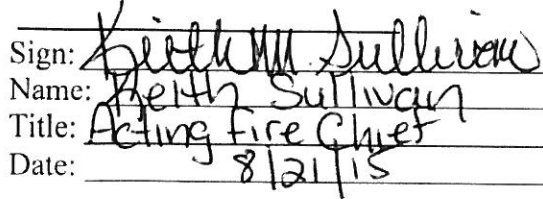 Sign: Keith M Sullivan
Name: Keith Sullivan
Title: Acting Fire Chief
Date: 8/21/15